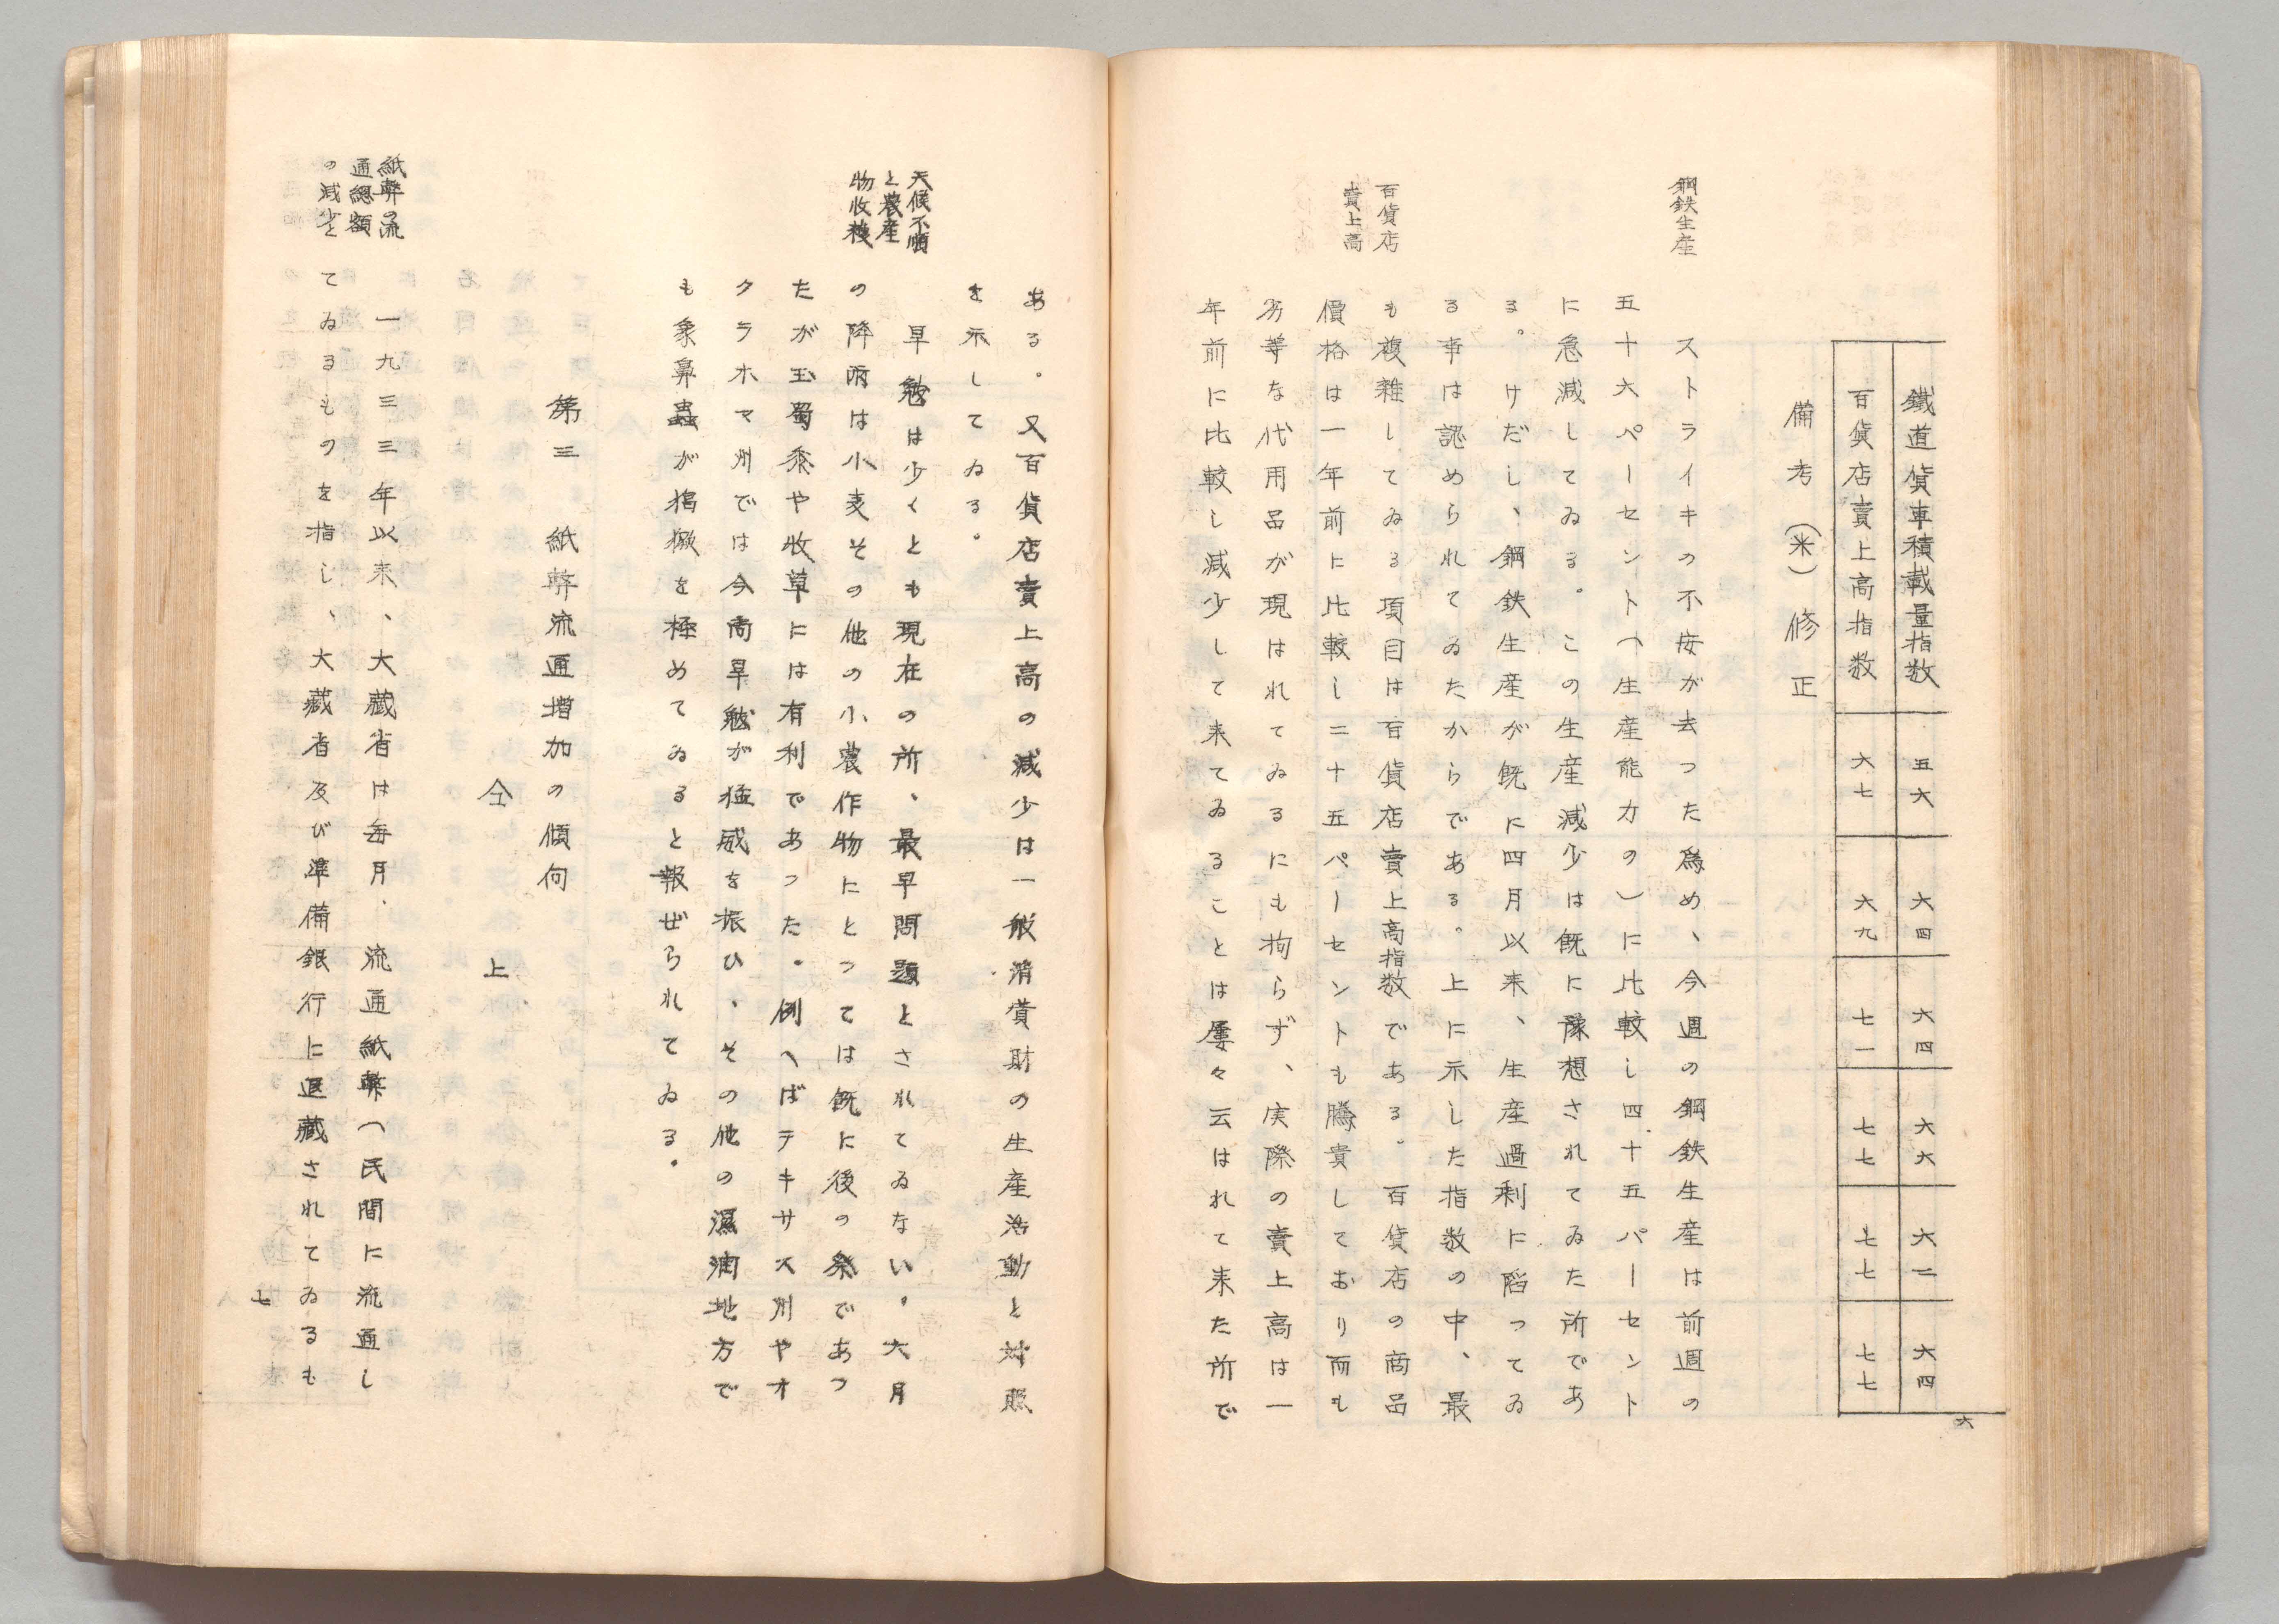 鐵道貨車積載量指数 五六 六四 六四 六六 六二 六四
百貨店賣上高指数 六七 六九 七一 七七 七七 七七
備考（米）修正
鋼鉄生産
ストライキの不安が去つた為め、今週の鋼鉄生産は前週の
五十六パーセント（生産能力の）に比較し四十五パーセント
に急減してゐる。この生産減少は既に豫想されてゐた所であ
る。けだし、鋼鉄生産が既に四月以来、生産過剰に陥つてゐ
る事は認められてゐたからである。上に示した指数の中、最
百貨店
賣上高
も複雑してゐる項目は百貨店賣上高指数である。百貨店の商品
價格は一年前に比較し二十五パーセントも騰貴しており而も
劣等な代用品が現はれてゐるにも拘らず、実際の賣上高は一
年前に比較し減少して来てゐることは屡々云はれて来た所で
六
ある。又百貨店賣上高の減少は一般消費財の生産活動と対照
を示してゐる。
天候不順
と農産
物收穫
旱魃は少くとも現在の所、最早問題とされてゐない。六月
の降雨は小麦その他の小農作物にとつては既に後の祭であつ
たが玉蜀黍や收草には有利であつた。例へばテキサス州やオ
クラホマ州では今尚旱魃が猛威を振ひ、その他の濕潤地方で
も象鼻蟲が猖獗を極めてゐると報ぜられてゐる。
第三 紙幣流通増加の傾向
仝 上
紙幣流
通總額
の減少と
一九三三年以来、大藏省は毎月、流通紙幣（民間に流通し
てゐるものを指し、大藏省及び準備銀行に退藏されてゐるも
七